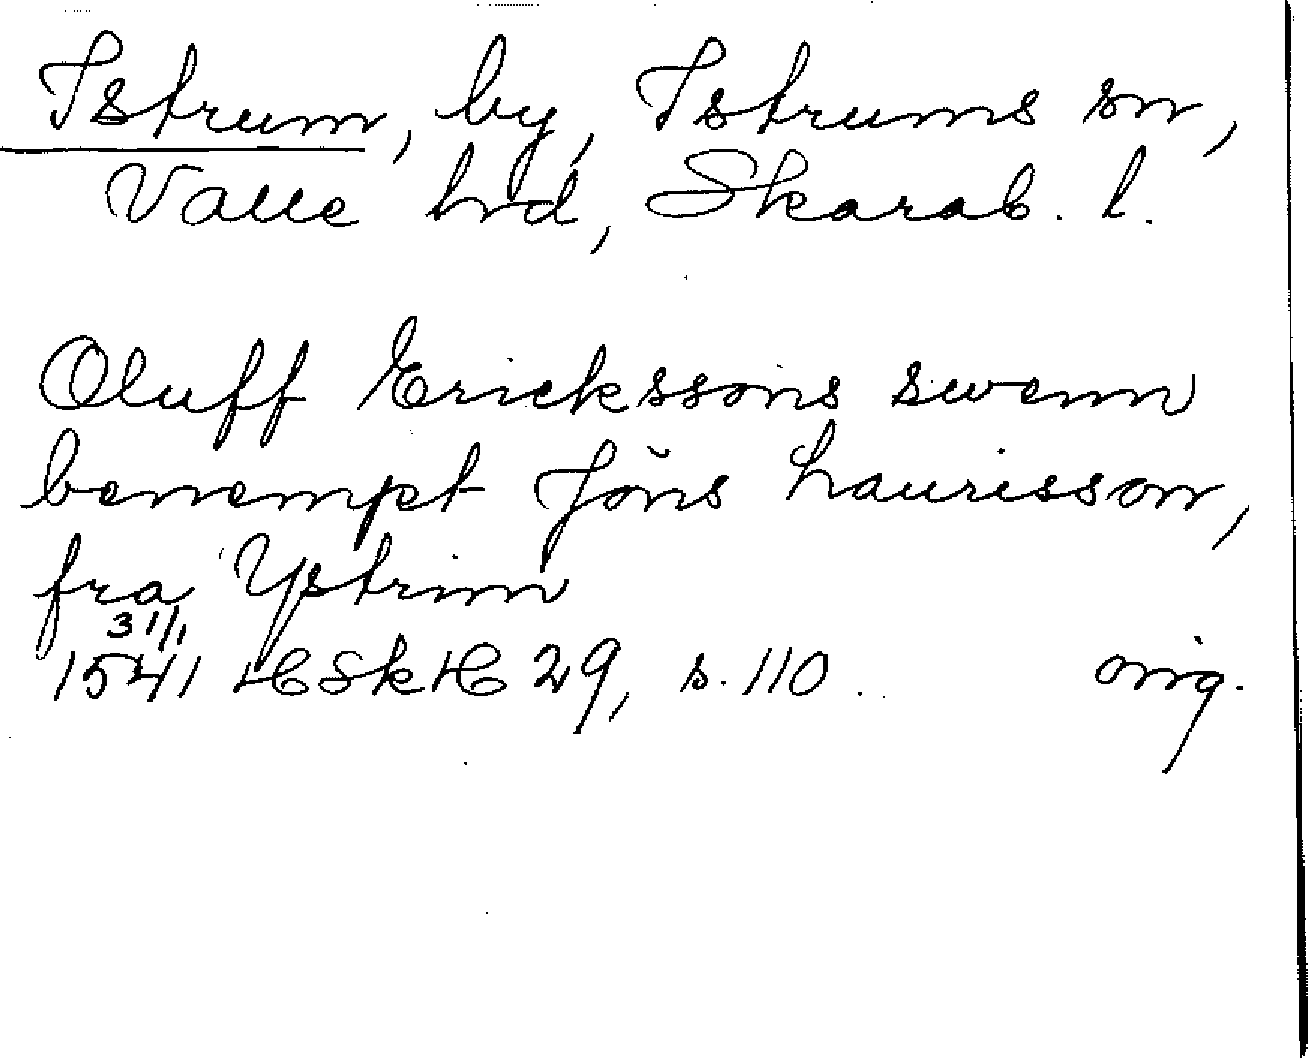 Istrum, by, Istrums sn,
Valle hd, Skarab. l.
Oluff Erickssons swenn
benempt Jöns Laurisson,
fra Ystrim
31/1
1541 HSkH 29, s. 110. orig.